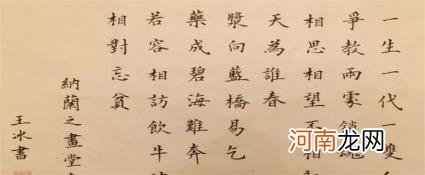 一生一代一雙
爭教兩處銷魂
相思相望不相
天為誰春
漿向藍橋易乞
藥成碧海難奔
若容相訪飲牛
相對忘貧
納蘭之畫堂
王冰書
河南龙网